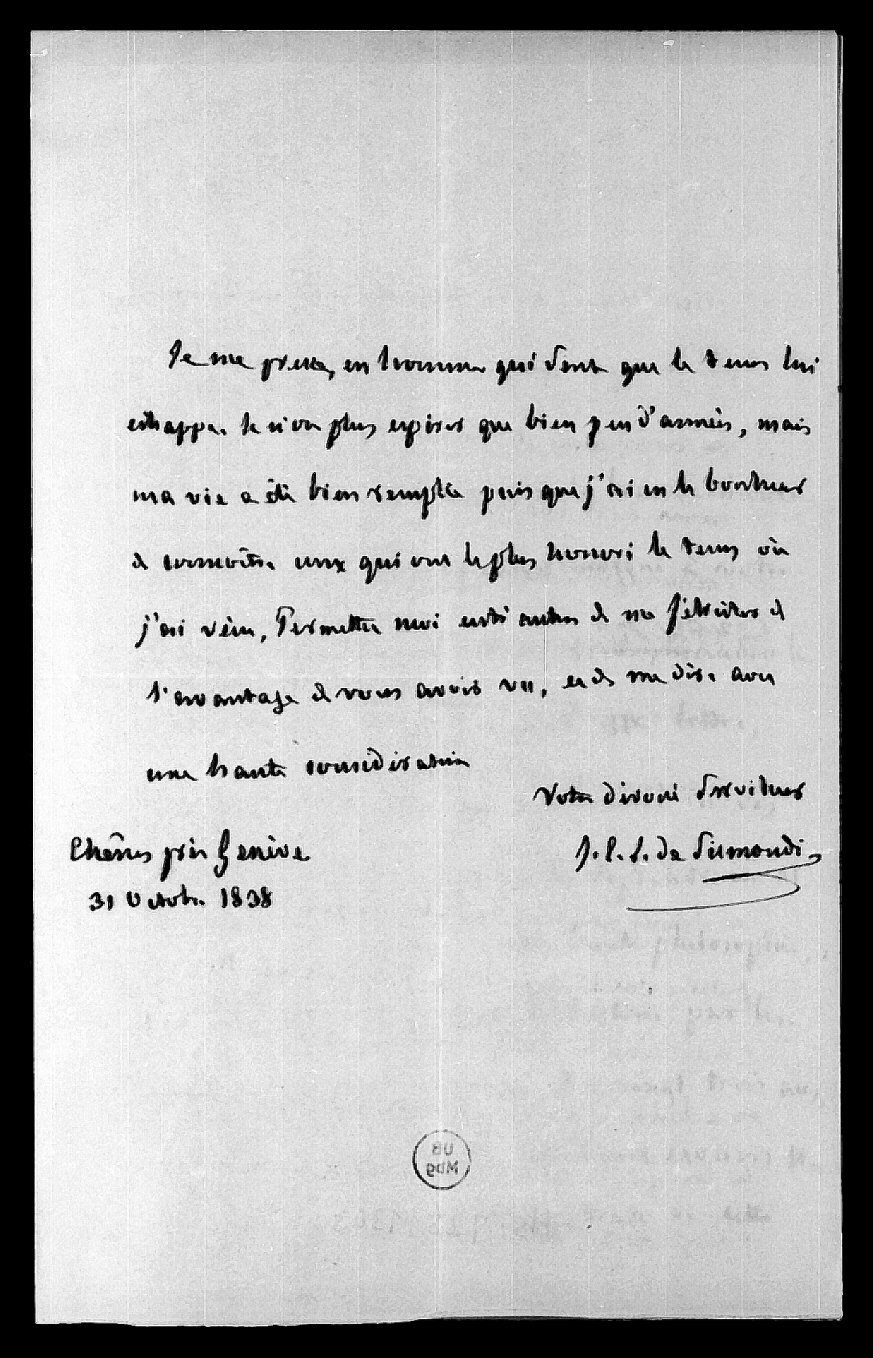 Je me presse, en homme qui sent que le tems lui
échappe. Je n'ose plus espérer que bien peu d'années, mais
ma vie a été bien remplie puis que j'ai eu le bonheur
de connoître ceux qui ont le plus honoré le tems où
j'ai vécu, Permettez moi entre autres de me féliciter de
l'avantage de vous avoir vu, et de me dire avec
une haute considération
Votre dévoué serviteur
Chênes près Genève
J. C. L. de Sismondi
31 Octobre 1838
UB
Mbg